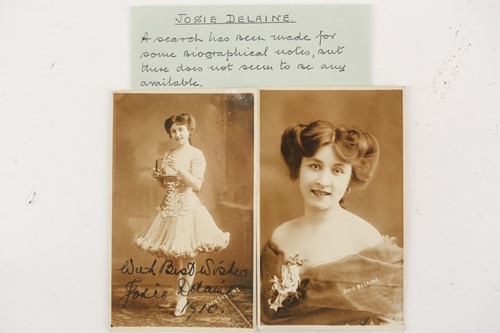 JOSIE DELAINE.
A search has been made for
some biographical notes, but
there does not seem to be any
available.
With Best Wishes
Josie Delaine
1910.
JOSIE DELAINE.